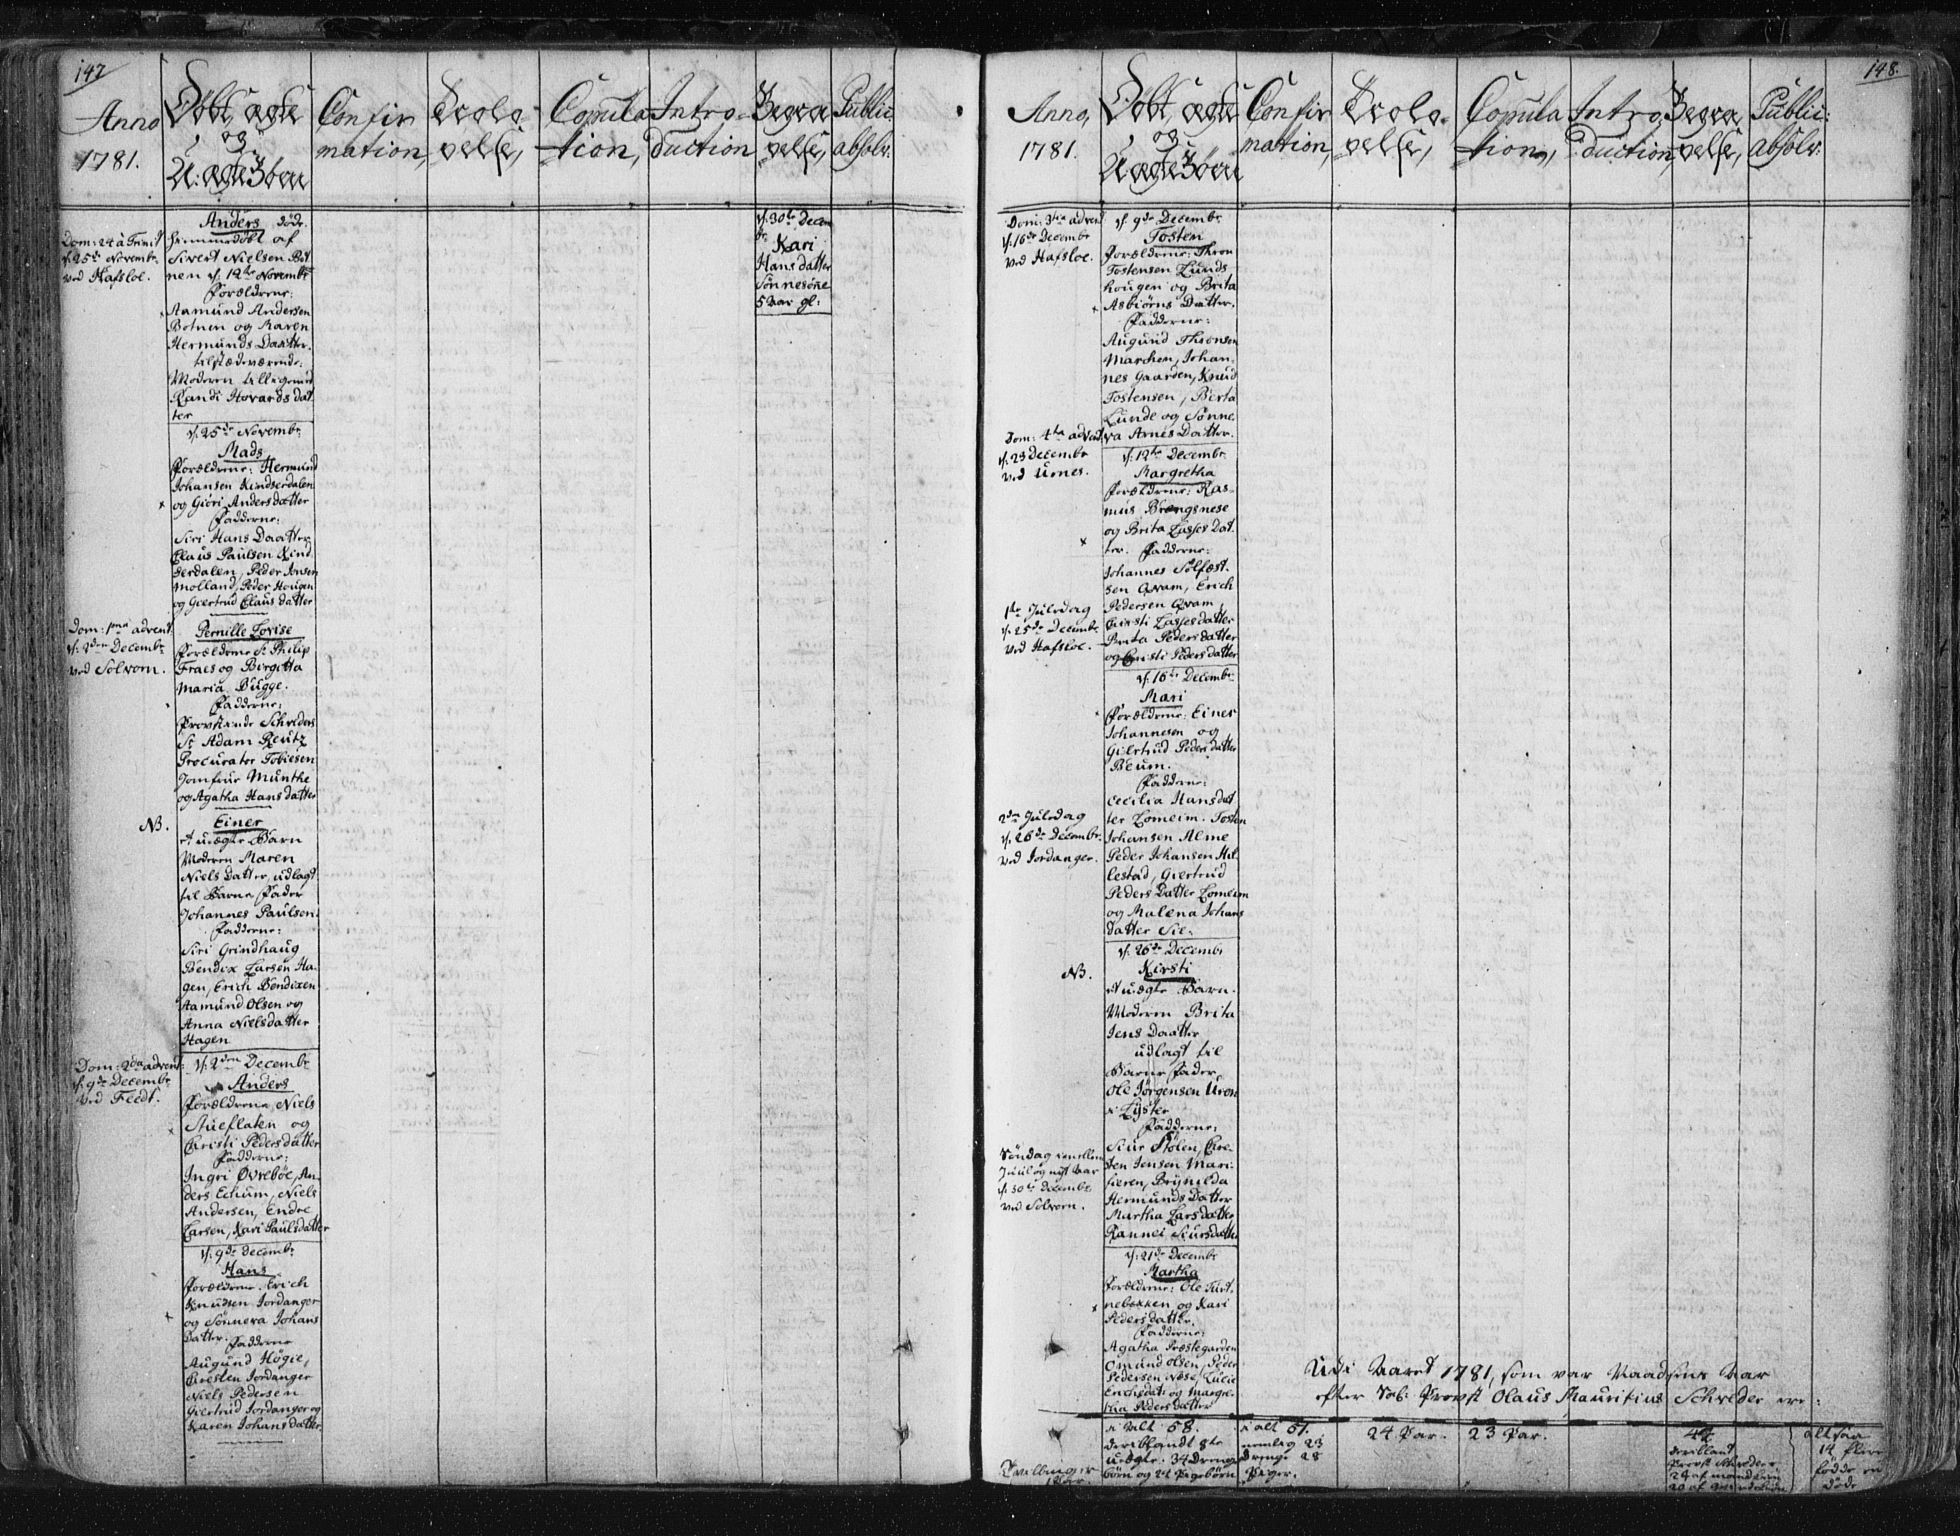 147
Anno 1781.
Døbt, ægte og U: ægte Børn
Confirmation,
Trolovelse,
Copulation,
Introduction
Begravelse,
Public: absolv:
Dom: 24 à Trinit
d: 25de Novembr
ved Hafsloe.
Anders døde.
hjemmedøbt af
Sivert Nielsen Bot
nen d: 12te Novembr
Forældrene:
Aamund Andersen
Botnen og Maren
Hermunds Daatter.
tilstædeværende:
Moderen tilligemed
Randi Hovards Dat
ter
d: 25de Novembr
Mads
Forældrene: Hermund
Johansen Kindserdalen
og Giøri Andersdatter
Fadderne:
Siri Hans Daatter
Claus Paulsen Kind
serdalen, Peder Jonsen
Molland, Peder Hougen
og Giertrud Clausdatter
Dom: 1ma advent:
d: 2den Decembr
ved Solvorn.
Pernille Lovise
Forældrene Sr Philip
Fraes og Birgitta
Maria Bugge.
Fadderne:
Provstinde Schrøders
Sr Adam Reutz
Procurator Tobiesen
Jomfrue Munthe
og Agatha Hansdatter
NB.
Einer
et uægte Barn
Moderen Maren
Niels Datter, udlagt
til Barne Fader
Johannes Paulsen.
Fadderne:
Siri Grindhaug
Bendix Larsen Ha-
gen, Erich Bendixen
Aamund Olsen og
Anna Nielsdatter
Hagen
Dom: 2da advent:
d: 9de Decembr
ved Feedt.
d: 2den Decembr
Anders
Forældrene, Niels
Stueflaten og
Christi Pedersdatter
Fadderne:
Ingri Øvrebøe, An-
ders Echum, Niels
Andersen, Endre
Larsen, Kari Paulsdatter
d: 9de Decembr
Hans
Forældrene. Erich
Knudsen Jordanger
og Sønneva Johans
Datter.
Fadderne
Augund Høgie,
Christen Jordanger
Niels Pedersen
Giertrud Jordanger og
Karen Johansdatter
d: 30te Decem
br
Kari
Hans datter
Sønnesøne
5 Aar gl:
148.
Anno, 1781.
Døbt, ægte og Uægte Børn
Confirmation,
Trolovelse,
Copulation,
Introduction,
Begravelse,
Public: absolv:
Dom: 3tia advent
d: 16de Decembr
ved Hafsloe.
d: 9de Decembr
Tosten
Forældrene: Thron
Tostensen Lunds
hougen og Brita
Asbiørns Datter.
Fadderne:
Augund Thronsen
Marchen, Johan-
nes Gaarden, Knud
Tostensen, Birta
Lunde og Sønne
va Arnes Datter.
Dom: 4ta advent:
d: 23 Decembr
ved Urnes.
d: 12te Decembr
Margretha
Forældrene: Ras-
mus Brængsnese
og Brita Lasses Dat
ter. Fadderne:
Johannes Sølfæst
sen Qvam, Erich
Pedersen Qvam
Christi Lassesdatter
Brita Pedersdatter
og Christi Pedersdatter
1te Juledag
d: 25de Decembr
ved Hafsloe.
d: 16de Decembr
Mari
Forældrene: Einer
Johannesen og
Giertrud Pedersdatter
Beum.
Fadderne:
Cecilia Hansdat
ter Lomeim. Tosten
Johansen Alme
Peder Johansen Hil
lestad, Giertrud
Peders Datter Lomeim
og Malena Johans
datter Sie.
2den Juledag
d: 26de Decembr
ved Jordanger.
NB.
d: 26de Decembr
Kirsti
et uægte Barn.
Moderen Brita
Jens Daatter
udlagt til
Barne Fader
Ole Jørgensen Uron
i Lyster
Fadderne:
Siur Stølen, Chre-
sten Jensen Mari-
fieren, Brynilda
Hermunds Datter
Martha Larsdatter
Rannei Siursdatter
Søndag imellem
Juul og nyt Aar
d: 30te Decembr
ved Solvorn.
d: 21de Decembr
Martha
Forældrene: Ole Furt
nebakken og Kari
Pedersdatter.
Fadderne:
Agatha Præstegarden
Omund Olsen, Peder
Pedersen Næse, Lucie
Erichsdatr og Margre-
tha Pedersdatter
Udi Aaret 1781, som var Naadsens Aar
efter Sal: Provst Olaus Mauritius Schrøder ere:
Tvillinger
1 Par.
i Alt 58.
deriblandt 8te
uægte. 34 Drenge
børn og 24 Pigebørn
i alt 51.
nemlig 23
drenge 28
Piger.
24 Par.
23 Par.
44
deribland
Provst Schrøder
24 af mandkiøn
20 af qvindekiøn
altsaa
14 flere
fødde en
døde